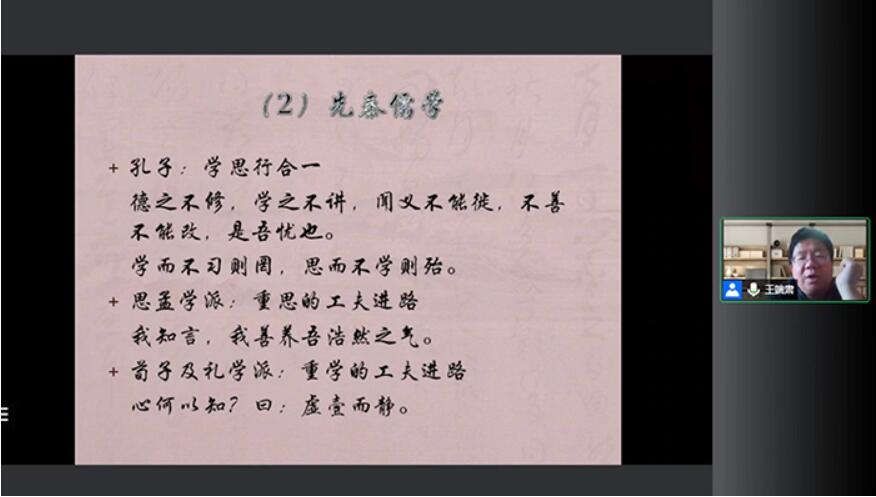 （2）先秦儒学
+ 孔子：学思行合一
德之不修，学之不讲，闻义不能徙，不善
不能改，是吾忧也。
学而不习则罔，思而不学则殆。
+ 思孟学派：重思的工夫进路
我知言，我善养吾浩然之气。
+ 荀子及礼学派：重学的工夫进路
心何以知？曰：虚壹而静。